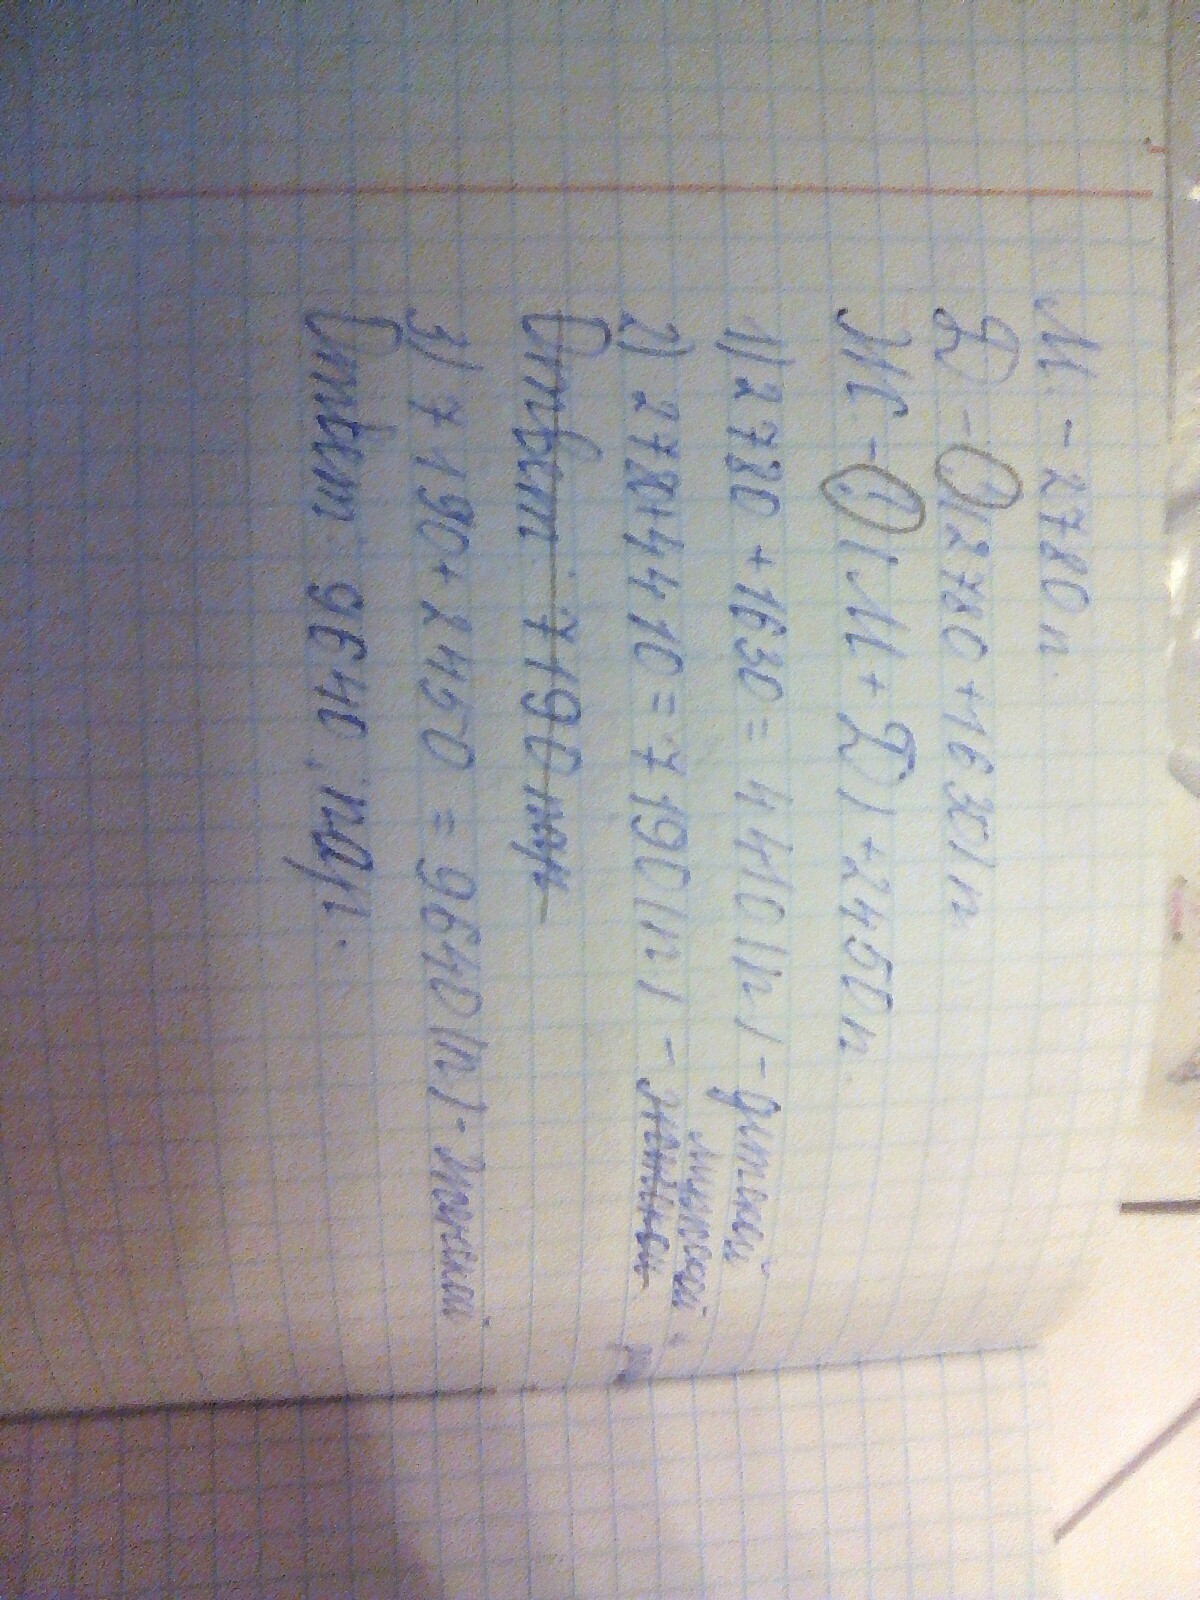 М. - 2780 п.
Д - ? (2780 + 1630) п.
Ж - ? (М + Д) + 2450 п
1) 2780 + 1630 = 4410 (п) - детской
2) 2780+4410 = 7190 (п) -
Ответ: 7190 пар
3) 7190 + 2450 = 9640 (п) - женской
Ответ: 9640 пар.